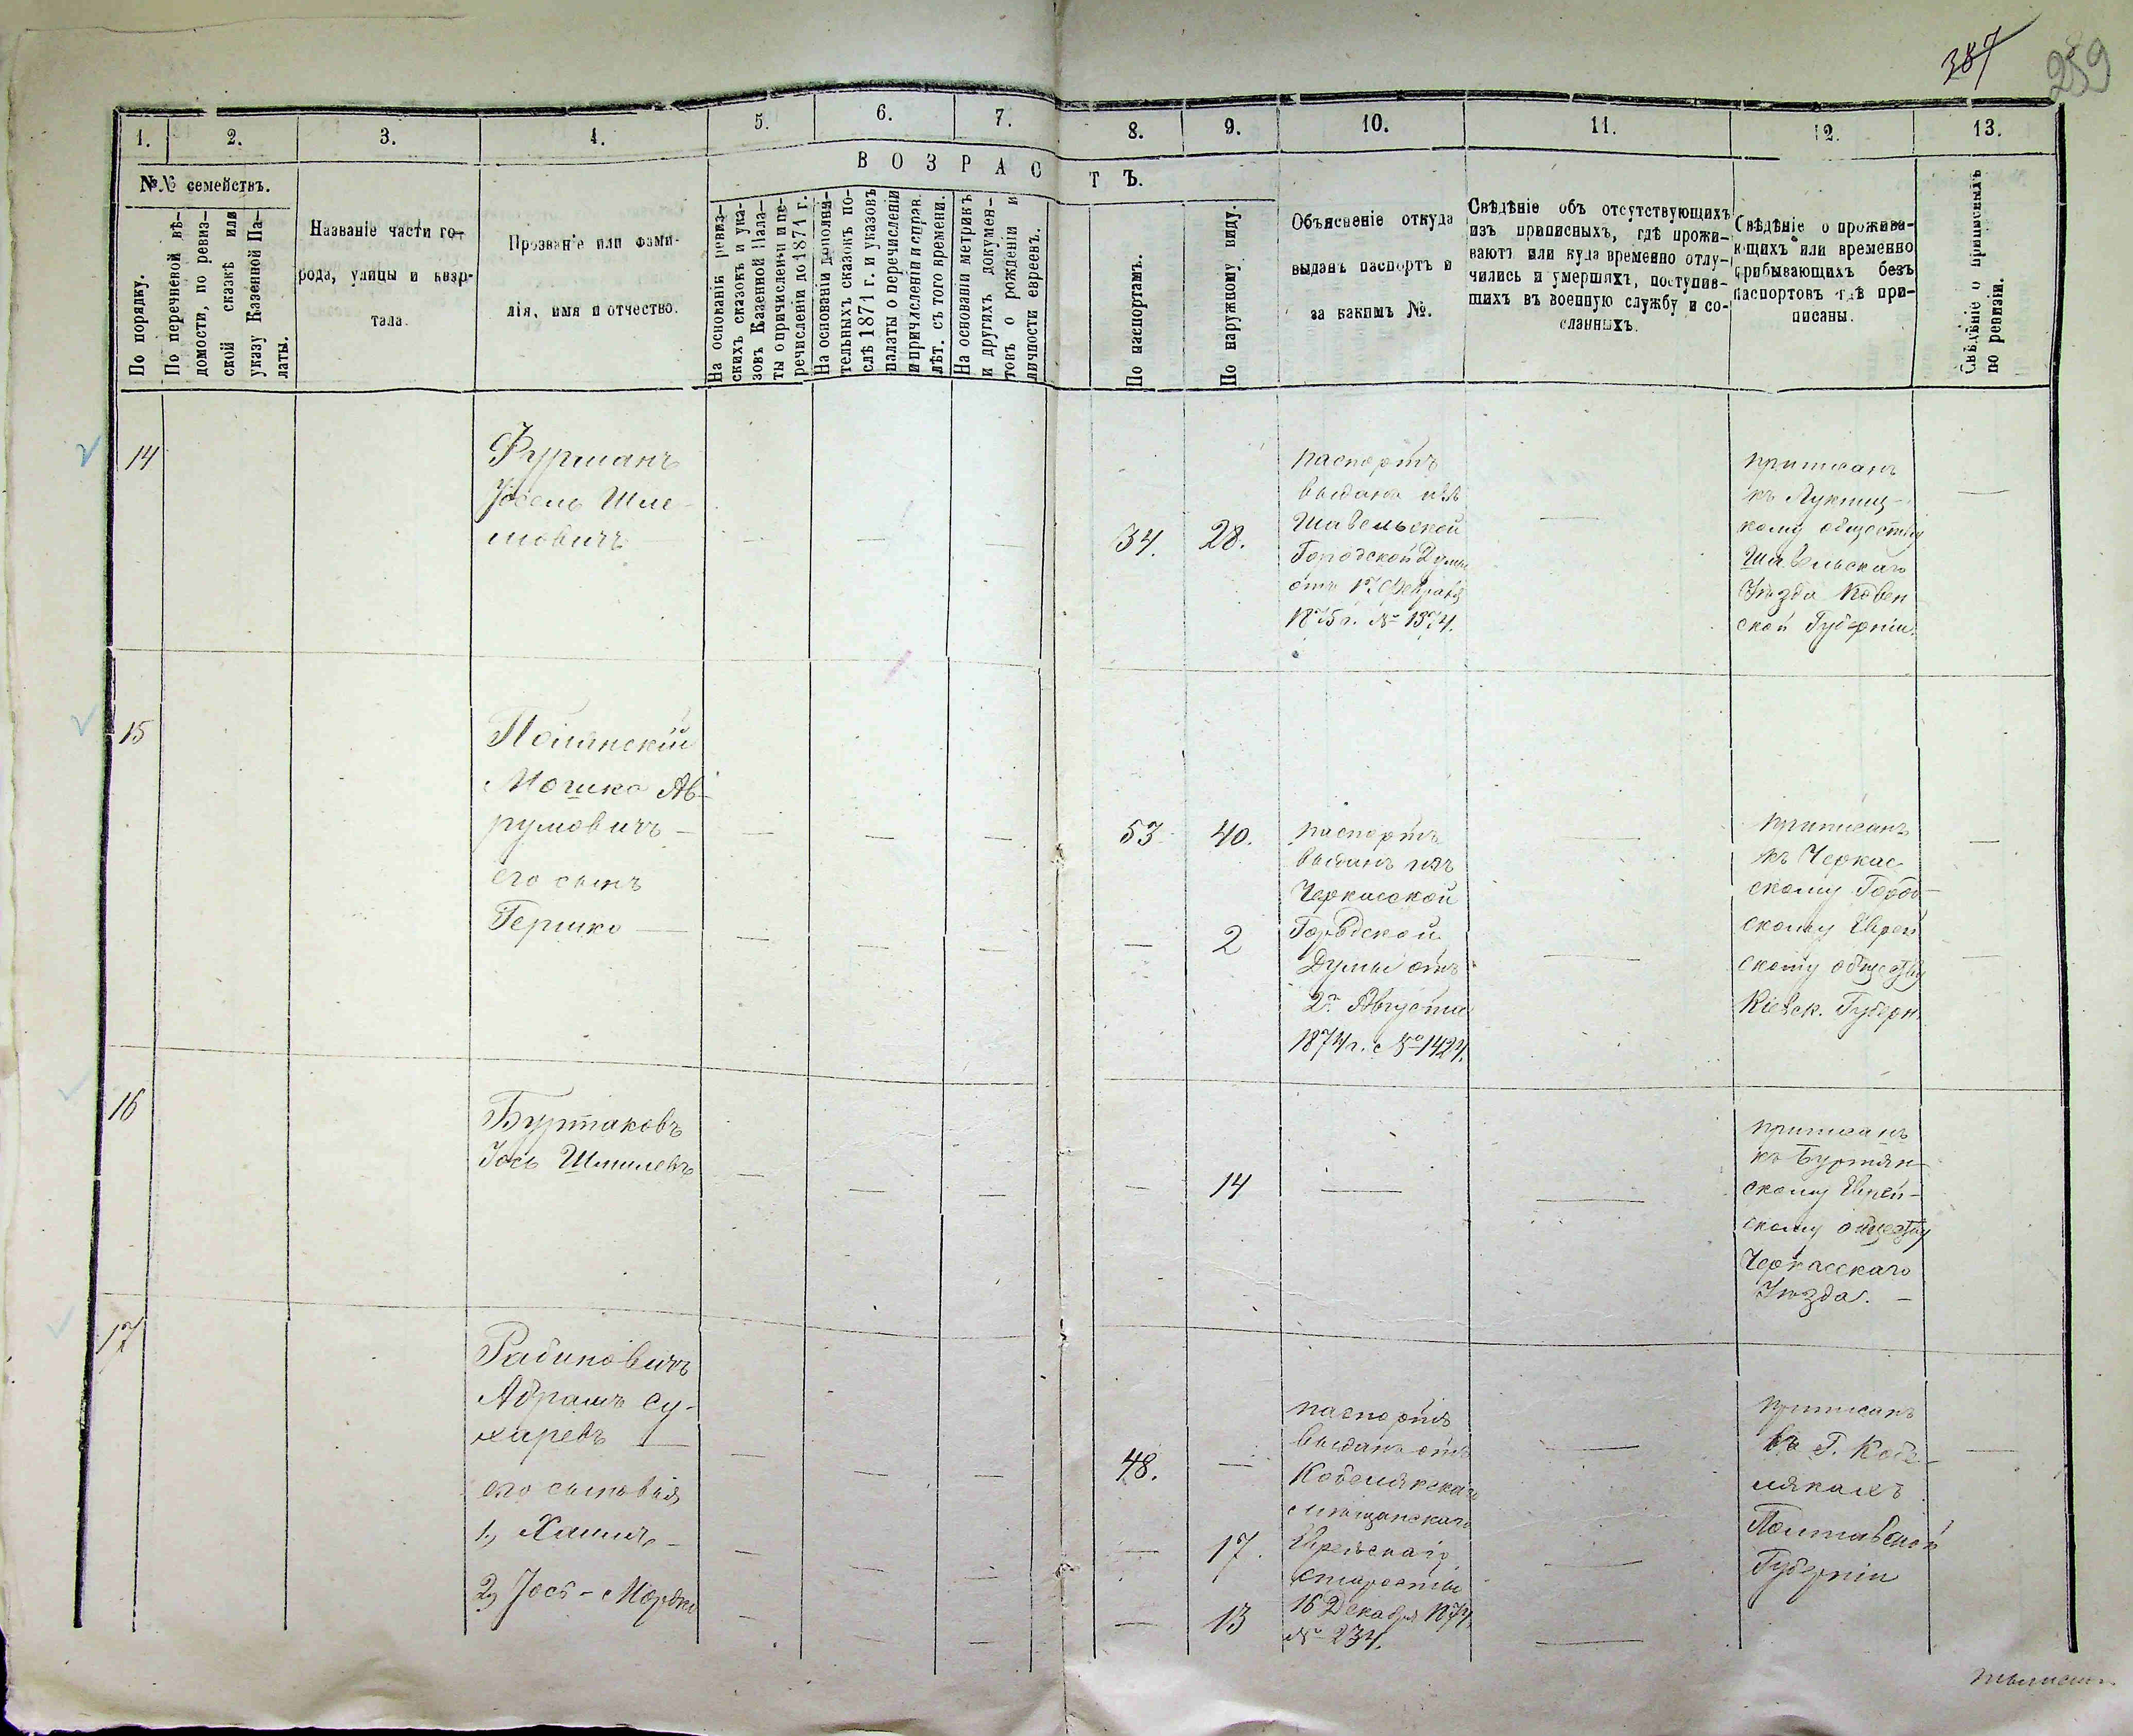 387
289
1.
2.
3.
4.
5.
6.
7.
8.
9.
10.
11.
12.
13.
№№ семействъ.
ВОЗРАСТЪ.
По порядку.
По перечневой вѣ-
домости, по ревиз-
ской сказкѣ или
указу Казенной Па-
латы.
Названіе части го-
рода, улицы и квар-
тала.
Прозваніе или фами-
лія, имя и отчество.
На основаніи ревиз-
скихъ сказокъ и ука-
зовъ Казенной Пала-
ты о причисленіи и пе-
речисленіи до 1871 г.
На основаніи дополни-
тельныхъ сказокъ по-
слѣ 1871 г. и указовъ
палаты о перечисленіи
и причисленіи и справ.
лѣт. съ того времени.
На основаніи метрикъ
и другихъ докумен-
товъ о рожденіи и
личности евреевъ.
По паспортамъ.
По наружному виду.
Объясненіе откуда
выданъ паспортъ и
за какимъ №.
Свѣдѣніе объ отсутствующихъ
изъ приписныхъ, гдѣ прожи-
ваютъ или куда временно отлу-
чились и умершихъ, поступив-
шихъ въ военную службу и со-
сланныхъ.
Свѣдѣніе о прожива-
ющихъ или временно
прибывающихъ безъ
паспортовъ гдѣ при-
писаны.
Свѣдѣніе о приписныхъ
по ревизіи.
14
Фурманъ
Іосель Шле-
мовичъ
— — —
34. 28.
паспортъ
выданъ изъ
Шавельской
Городской Думы
отъ 17 Февраля
1875 г. № 1374.
—
приписанъ
къ
кому обществу
Шавельскаго
Уѣзда Ковен
ской Губерніи.
—
15
Полянскій
Мошко Аб-
румовичъ —
— — —
53 40.
его сынъ
Гершко —
— — —
— 2
паспортъ
выданъ изъ
Черкасской
Городской
Думы отъ
2го Августа
1874 г. с № 1424.
—
—
приписанъ
къ Черкас
скому Городо-
скому Еврей
скому обществу
Кіевск. Губерн.
—
—
16
Буртаковъ
Іось Шмилевъ
— — —
— 14
—
—
приписанъ
къ Буртян-
скому Еврей-
скому обществу
Черкасскаго
Уѣзда. —
17
Рабиновичъ
Абрамъ Су-
харевъ —
— — —
48. —
его сыновья
1., Хаимъ —
— — —
— 17.
2, Іось - Мордко
— — —
— 13
паспортъ
выданъ отъ
Кобелякскаго
мѣщанскаго
Еврейскаго
старосты
16 Декабря 1874
№ 234.
—
—
—
приписанъ
въ г. Кобе-
лякахъ
Полтавской
Губерніи
—